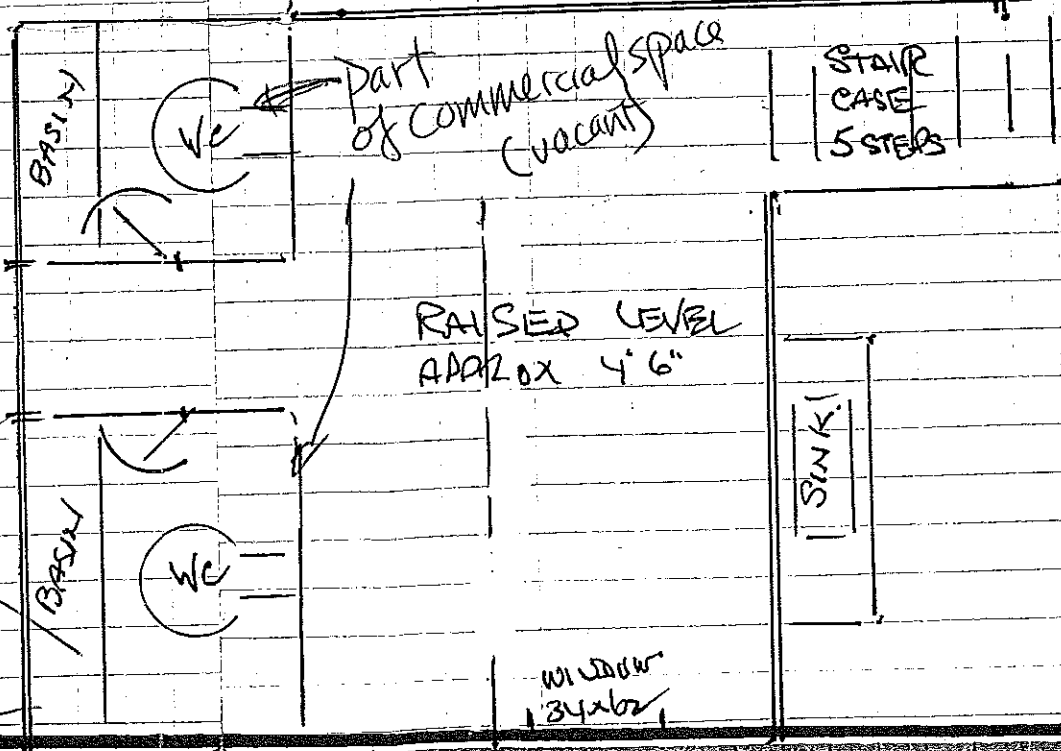 BASIN
WC
part
of commercial space
(vacant)
STAIR
CASE
5 STEPS
RAISED LEVEL
APPROX 4'6"
SINK
BASIN
WC
WINDOW
34x62